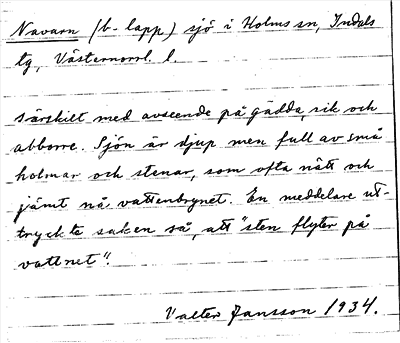 Navarn (b-lapp) sjö i Holms sn, Indals
tg, Västernorrl. l.
särskilt med avseende på gädda, sik och
abborre. Sjön är djup men full av små
holmar och stenar, som ofta nätt och
jämt nå vattenbrynet. En meddelare ut-
tryckte saken så, att "sten flyter på
vattnet".
Valter Jansson 1934.